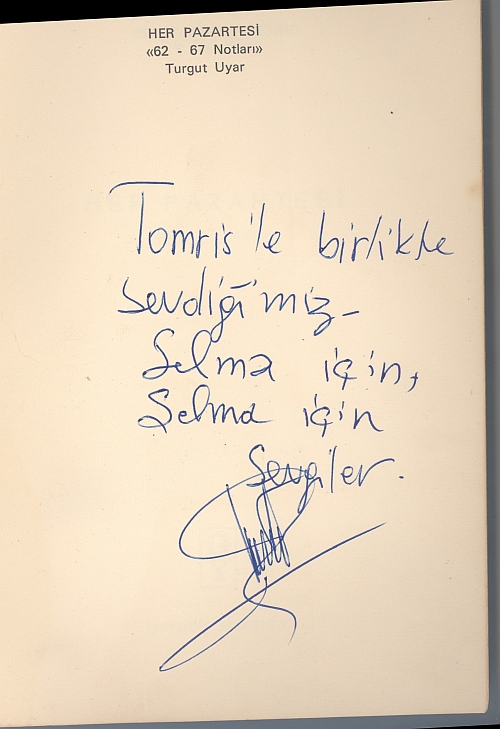 HER PAZARTESİ
«62 - 67 Notları»
Turgut Uyar
Tomris'le birlikte
sevdiğimiz_
Selma için,
Selma için
Sevgiler.